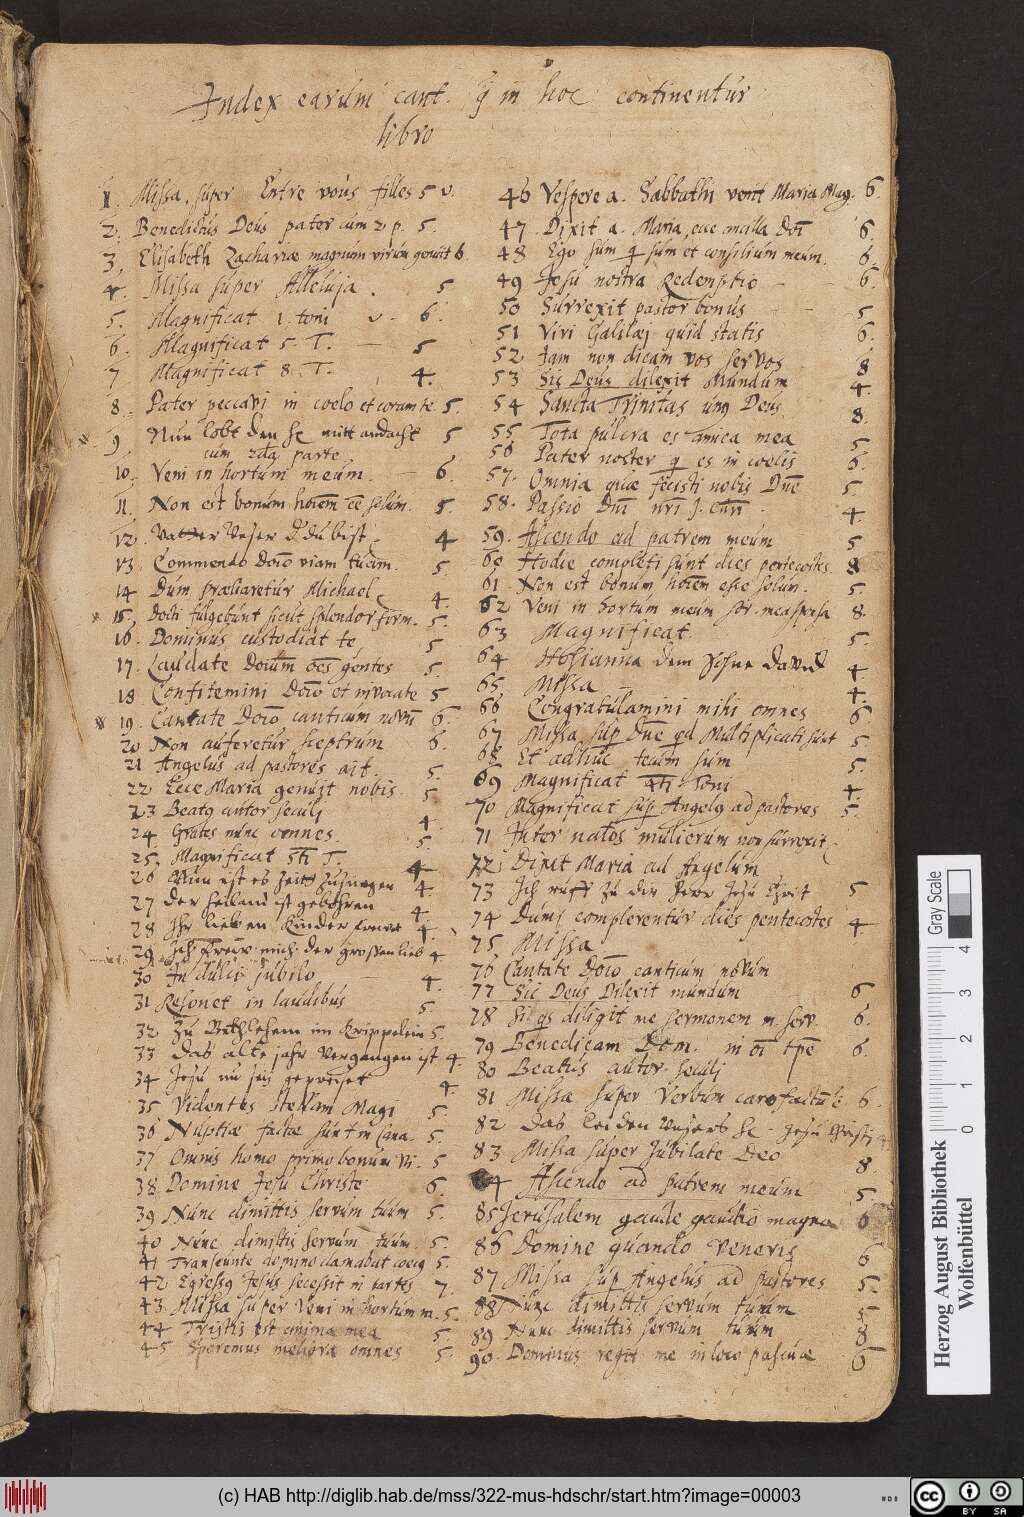 Index earum cant. q̃ in hoc continentur
libro
1. Missa super Entre vous filles 5 v.
2. Benedictus Deus pater cum 2 p. 5.
3. Elisabeth Zachariæ magnum virum genuit 6
4. Missa super Alleluja. 5
5. Magnificat 1. toni 6.
6. Magnificat 5. T. 5
7 Magnificat 8. T. 4.
8. Pater peccavi in coelo et coram te. 5.
9 Nun lobt den he mitt andacht 5
cum 2da parte
10. Veni in hortum meum. 6.
11. Non est bonum hoıẽm cẽ solum. 5.
12. Vatter Unser d. du bist 4
13. Commendo Dnõ viam tuam. 5.
14 Dum præliaretur Michael 4.
15. Docti fulgebunt sicut splendor firm. 5.
16. Dominus custodiat te 5
17. Laudate Dnum oẽs gentes 5.
18 Confitemini Dnõ et invocate 5
19. Cantate Dnõ canticum novũ 6.
20 Non auferetur sceptrum 6.
21 Angelus ad pastores ait. 5.
22 Ecce Maria genuit nobis. 5
23 Beatq autor seculj 4
24. Grates nunc omnes 5.
25. Magnificat 5ti T. 4
26 Nun ist es Zeitt Zusingen 4.
27 der heiland ist gebohren 4
28 Ihr lieben Kinder frewt 4
29 Ich frew mich der grossen lieb 4.
30 In dulci jubilo 4.
31 Resonet in laudibus 5.
32 Zu Bethlehem im Krippelein 5.
33 das alte jahr vergangen ist 4.
34 Jesu nu sey gepreiset 4.
35 Videntes stellam Magi 5.
36 Nuptiæ factæ sunt in Cana. 5.
37 Omnis homo primo bonum vi. 5
38 Domine Jesu Christe 6.
39 Nunc dimittis servum tuum 5.
40 Nunc dimittis servum tuum. 5.
41 Transeunte domino clamabat coecq 5
42 Egressq Jesus secessit in partes 7.
43 Missa super Veni in hortum m. 5.
44 Tristis est anima mea 5
45 Speremus meliora omnes 5.
46 Vespere a. Sabbathi venit Maria Mag. 6
47. Dixit a. Maria, ecce ancilla Dñi 6.
48 Ego sum q̃ sum et consilium meum. 6.
49 Jesu nostra Redemptio 6.
50 Surrexit pastor bonus 5
51 Viri Galilæj quid statis 6.
52 Jam non dicam vos servos 8
53 Sic Deus dilexit Mundum 4.
54 Sancta Trinitas unq Deus 8.
55 Tota pulcra es amica mea 5
56 Pater noster q̃ es in coelis 6.
57. Omnia quæ fecisti nobis Dñe 5.
58. Passio Dñi nr̃i J. Chr̃i 4.
59. Ascendo ad patrem meum 5
60 Hodie completi sunt dies pentecostes 8
61. Non est bonum hoıẽm esse solum. 5.
62 Veni in hortum meum sor. mea sponsa 8.
63 Magnificat 5.
64 Hosianna dem Sohne David 4
65 Missa 4.
66 Congratulamini mihi omnes 6
67 Missa sup Dñe qd Multiplicati sunt 5
68 Et adhuc tecum sum 5.
69 Magnificat 4ti Toni 4.
70 Magnificat sup Angelq ad pastores 5
71 Inter natos mulierum non surrexit
72 Dixit Maria ad Angelum
73 Ich ruff zu dir Herr Jesu Christ 5
74 Dum complerentur dies pentecostes 4
75 Missa
76 Cantate Dnõ canticum novum
77 Sic Deus Dilexit mundum 6
78 Si qs diligit me sermonem m. serv. 6.
79 Benedicam Dom. in oĩ tp̃e 6.
80 Beatus autor seculj
81 Missa super Verbum caro factũ ẽ 6.
82 Das Leiden unsers he. Jesu Christj 4
83 Missa super Jubilate Deo 8.
84 Ascendo ad patrem meum 5
85 Jerusalem gaude gaudio magno 6
86 Domine quando veneris 6
87 Missa sup Angelus ad pastores 5
88 Nunc dimittis servum tuum 5
89 Nunc dimittis servum tuum 8
90. Dominus regit me in loco pascuæ 6
Herzog August Bibliothek
Wolfenbüttel
Gray Scale
0 1 2 3 4
(c) HAB http://diglib.hab.de/mss/322-mus-hdschr/start.htm?image=00003
cc BY SA